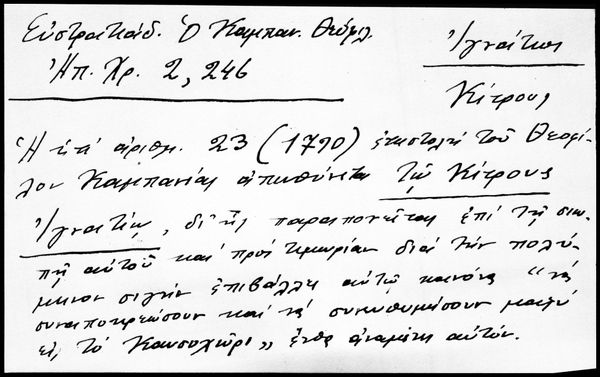 Εὐστρατιάδ. Ὁ Καμπαν. Θεόφιλ.
Ἠπ. Χρ. 2, 246
Ἰγνάτιος
Κίτρους
Ἡ ὑπ' ἀριθμ. 23 (1790) ἐπιστολὴ τοῦ Θεοφί-
λου Καμπανίας ἀπευθύνεται τῷ Κίτρους
Ἰγνατίῳ, δι' ἧς παραπονεῖται ἐπὶ τῇ σιω-
πῇ αὐτοῦ καὶ πρὸς τιμωρίαν διὰ τὴν πολύ-
μηνον σιγὴν ἐπιβάλλει αὐτῷ κανόνα "νὰ
συναποκρεώσουν καὶ νὰ συνευθυμήσουν μαζὺ
εἰς τὸ Καψοχῶρι„ ἔνθα ἀναμένει αὐτόν.